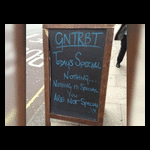 GNTRBT
Todays Special
Nothing..
Nothing is Special
You
Are Not Special